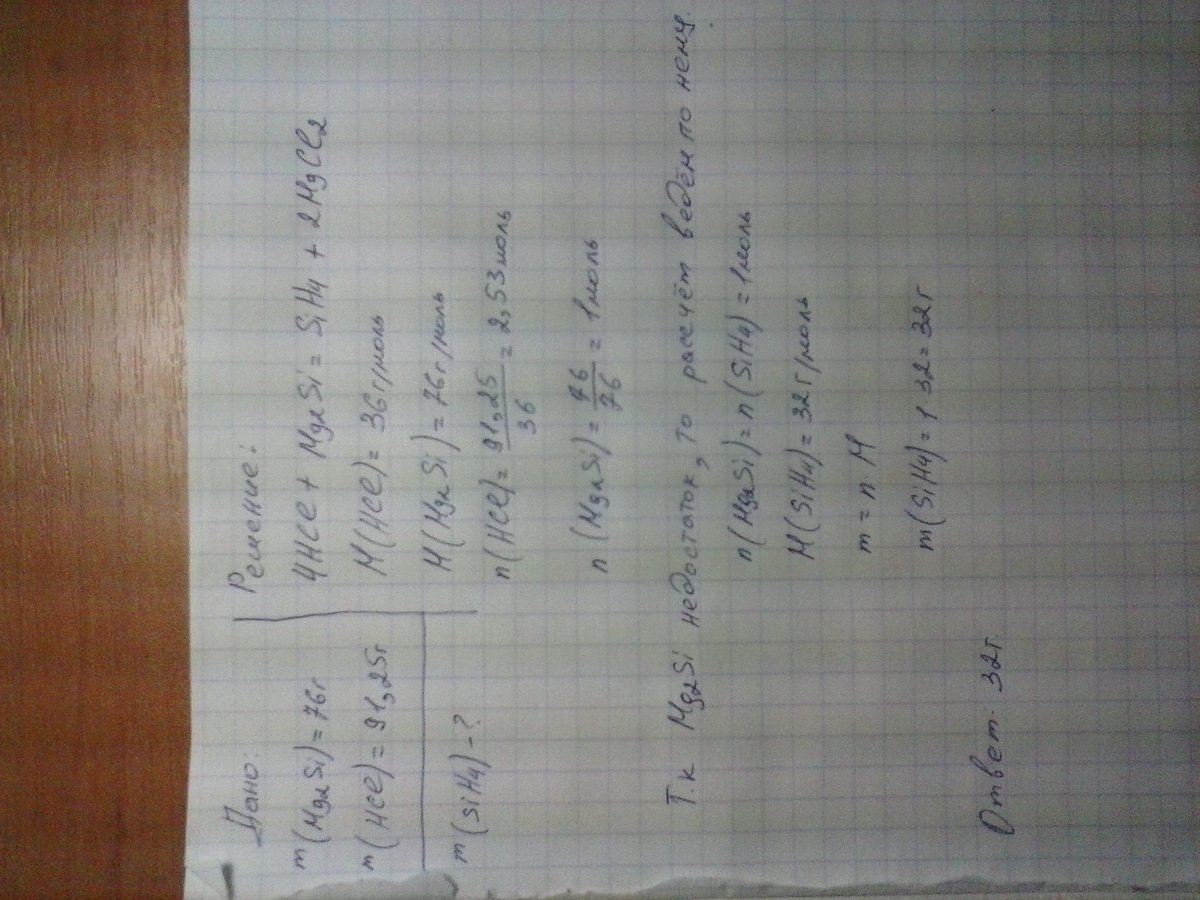 Дано:
m(Mg2Si)=76г
m(HCl)=91,25г
m(SiH4)-?
Решение:
4HCl+Mg2Si=SiH4+2MgCl2
M(HCl)=36г/моль
M(Mg2Si)=76г/моль
n(HCl)=91,25/36=2,53моль
n(Mg2Si)=76/76=1моль
Т.к Mg2Si недостаток, то рассчёт ведём по нему.
n(Mg2Si)=n(SiH4)=1моль
M(SiH4)=32г/моль
m=n M
m(SiH4)=1 32=32г
Ответ. 32г.